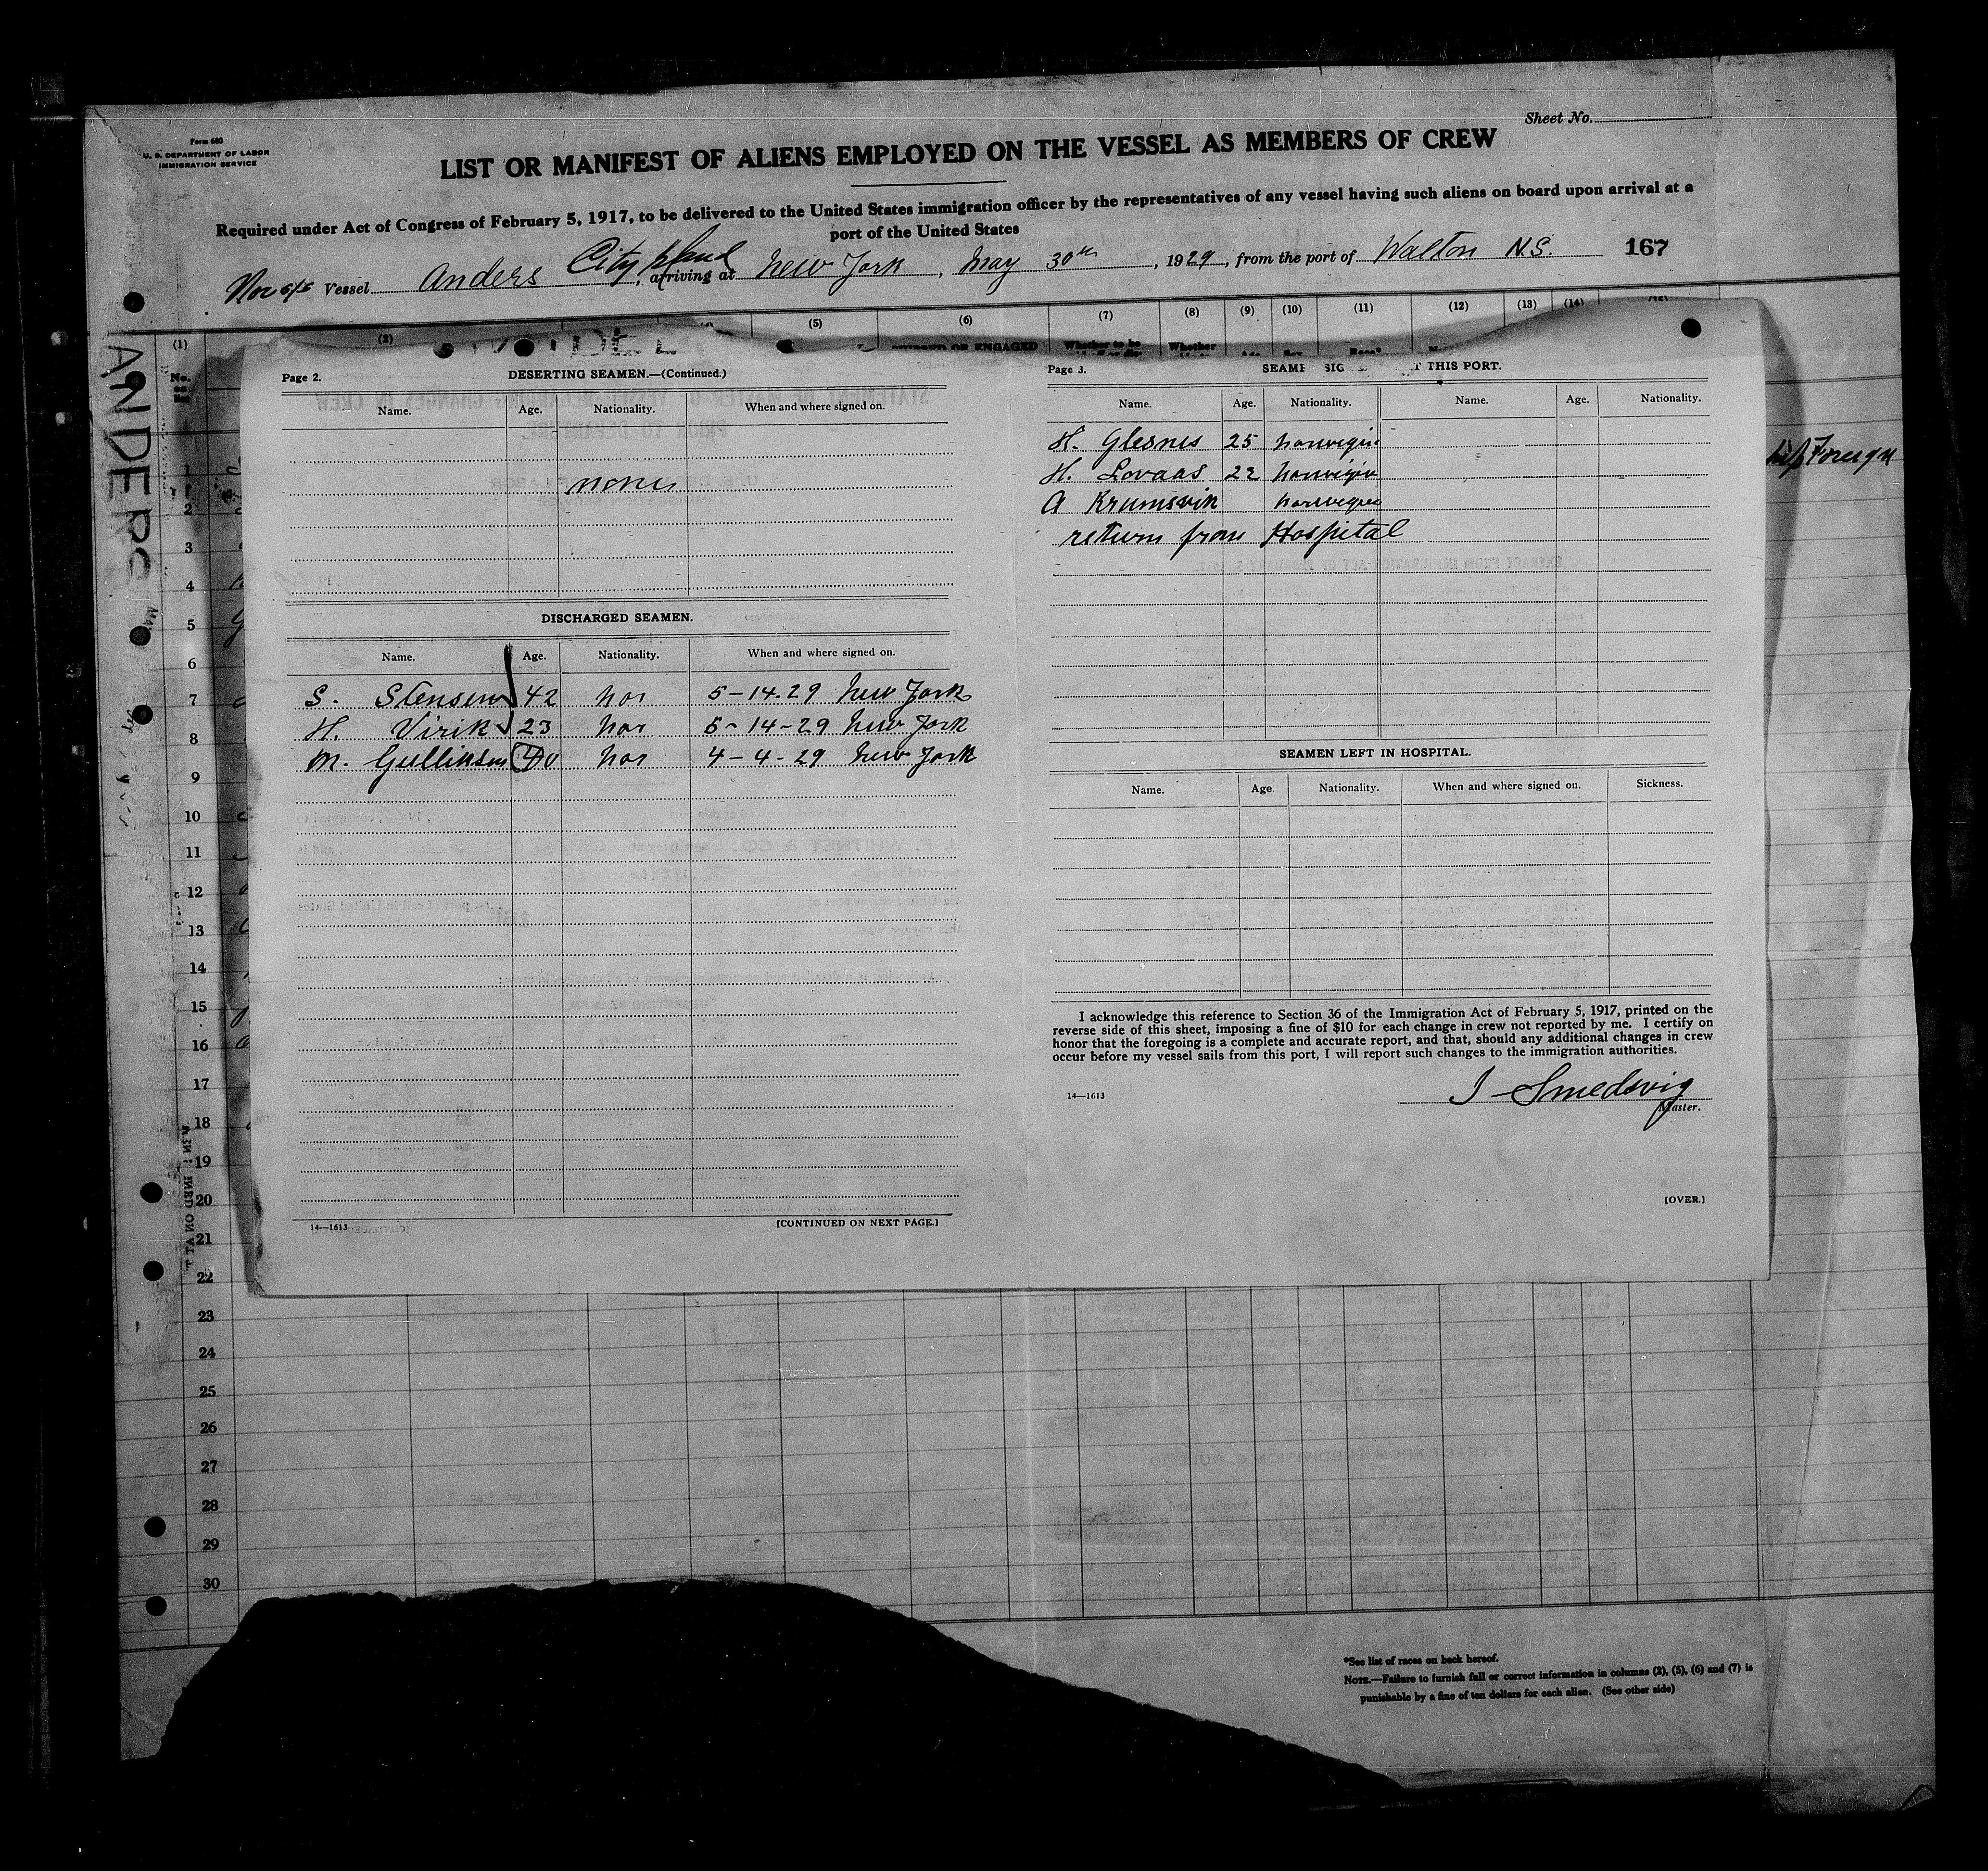 Sheet No.
Form 680
U. S. DEPARTMENT OF LABOR
IMMIGRATION SERVICE
LIST OR MANIFEST OF ALIENS EMPLOYED ON THE VESSEL AS MEMBERS OF CREW
Required under Act of Congress of February 5, 1917, to be delivered to the United States immigration officer by the representatives of any vessel having such aliens on board upon arrival at a
port of the United States
Nor s/s Vessel Anders, arriving at New York, May 30th, 1929, from the port of Walton N.S. 167
City
(1) (2) (5) (6) (7) (8) (9) (10) (11) (12) (13) (14)
No.
ANDERS
Foreign
Page 2. DESERTING SEAMEN.—(Continued.)
Name. Age. Nationality. When and where signed on.
none
DISCHARGED SEAMEN.
Name. Age. Nationality. When and where signed on.
S. Stensen 42 Nor 5-14-29 New York
H. Virik 23 Nor 5-14-29 New York
M. Gulliksen 40 Nor 4-4-29 New York
14—1613 [CONTINUED ON NEXT PAGE.]
Page 3. THIS PORT.
Name. Age. Nationality. Name. Age. Nationality.
H. Glesnes 25 Norwegian
H. Lovaas 22 Norwegian
A Krumsvik Norwegian
return from Hospital
SEAMEN LEFT IN HOSPITAL.
Name. Age. Nationality. When and where signed on. Sickness.
I acknowledge this reference to Section 36 of the Immigration Act of February 5, 1917, printed on the
reverse side of this sheet, imposing a fine of $10 for each change in crew not reported by me. I certify on
honor that the foregoing is a complete and accurate report, and that, should any additional changes in crew
occur before my vessel sails from this port, I will report such changes to the immigration authorities.
I Smedsvig
14—1613 Master.
[OVER.]
1
2
3
4
5
6
7
8
9
10
11
12
13
14
15
16
17
18
19
20
21
22
23
24
25
26
27
28
29
30
*See list of races on back hereof.
NOTE.—Failure to furnish full or correct information in columns (2), (5), (6) and (7) is
punishable by a fine of ten dollars for each alien. (See other side)